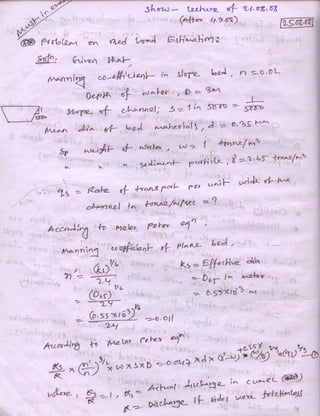 Show – Lecture of 21.08.08
(After 4.9.08)
25.08.08
Problem on Bed Load Estimation:
Soln. Given that,
Manning co-efficient in slope bed, n = 0.02
Depth of water, D = 3M
Slope of channel; S = 1 in 5000 = 1/5000
Mean dia of bed materials, d = 0.35 mm
Sp weight of water, w = 1 tonne/m³
" " sediment particle, = 2.65 tonne/m³
∴ qs = Rate of transport per unit width of the
channel in tonne/m/sec = ?
According to Meler Peter eqn.
Manning coefficient of plane bed,
n' = (ks)^1/6 / 24
ks = Effective dia
= D65 in meter
= (D65)^1/6 / 24
= 0.55×10⁻³ m
= (0.55×10⁻³)^1/6 / 24 = 0.011
According to Meler Peter eqn
where, = 1, = Actual discharge in cumec
= Discharge if sides were frictionless